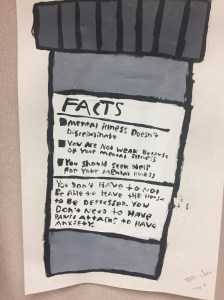 FACTS
Mental illness Doesn't
Discriminate
You Are Not Weak Because
of Your Mental illness
You should seek Help
For Your Mental illness
You Don't Have to not
Be Able to leave the House
to be Depressed. You
Don't need to have
Panic Attacks to Have
Anxiety.